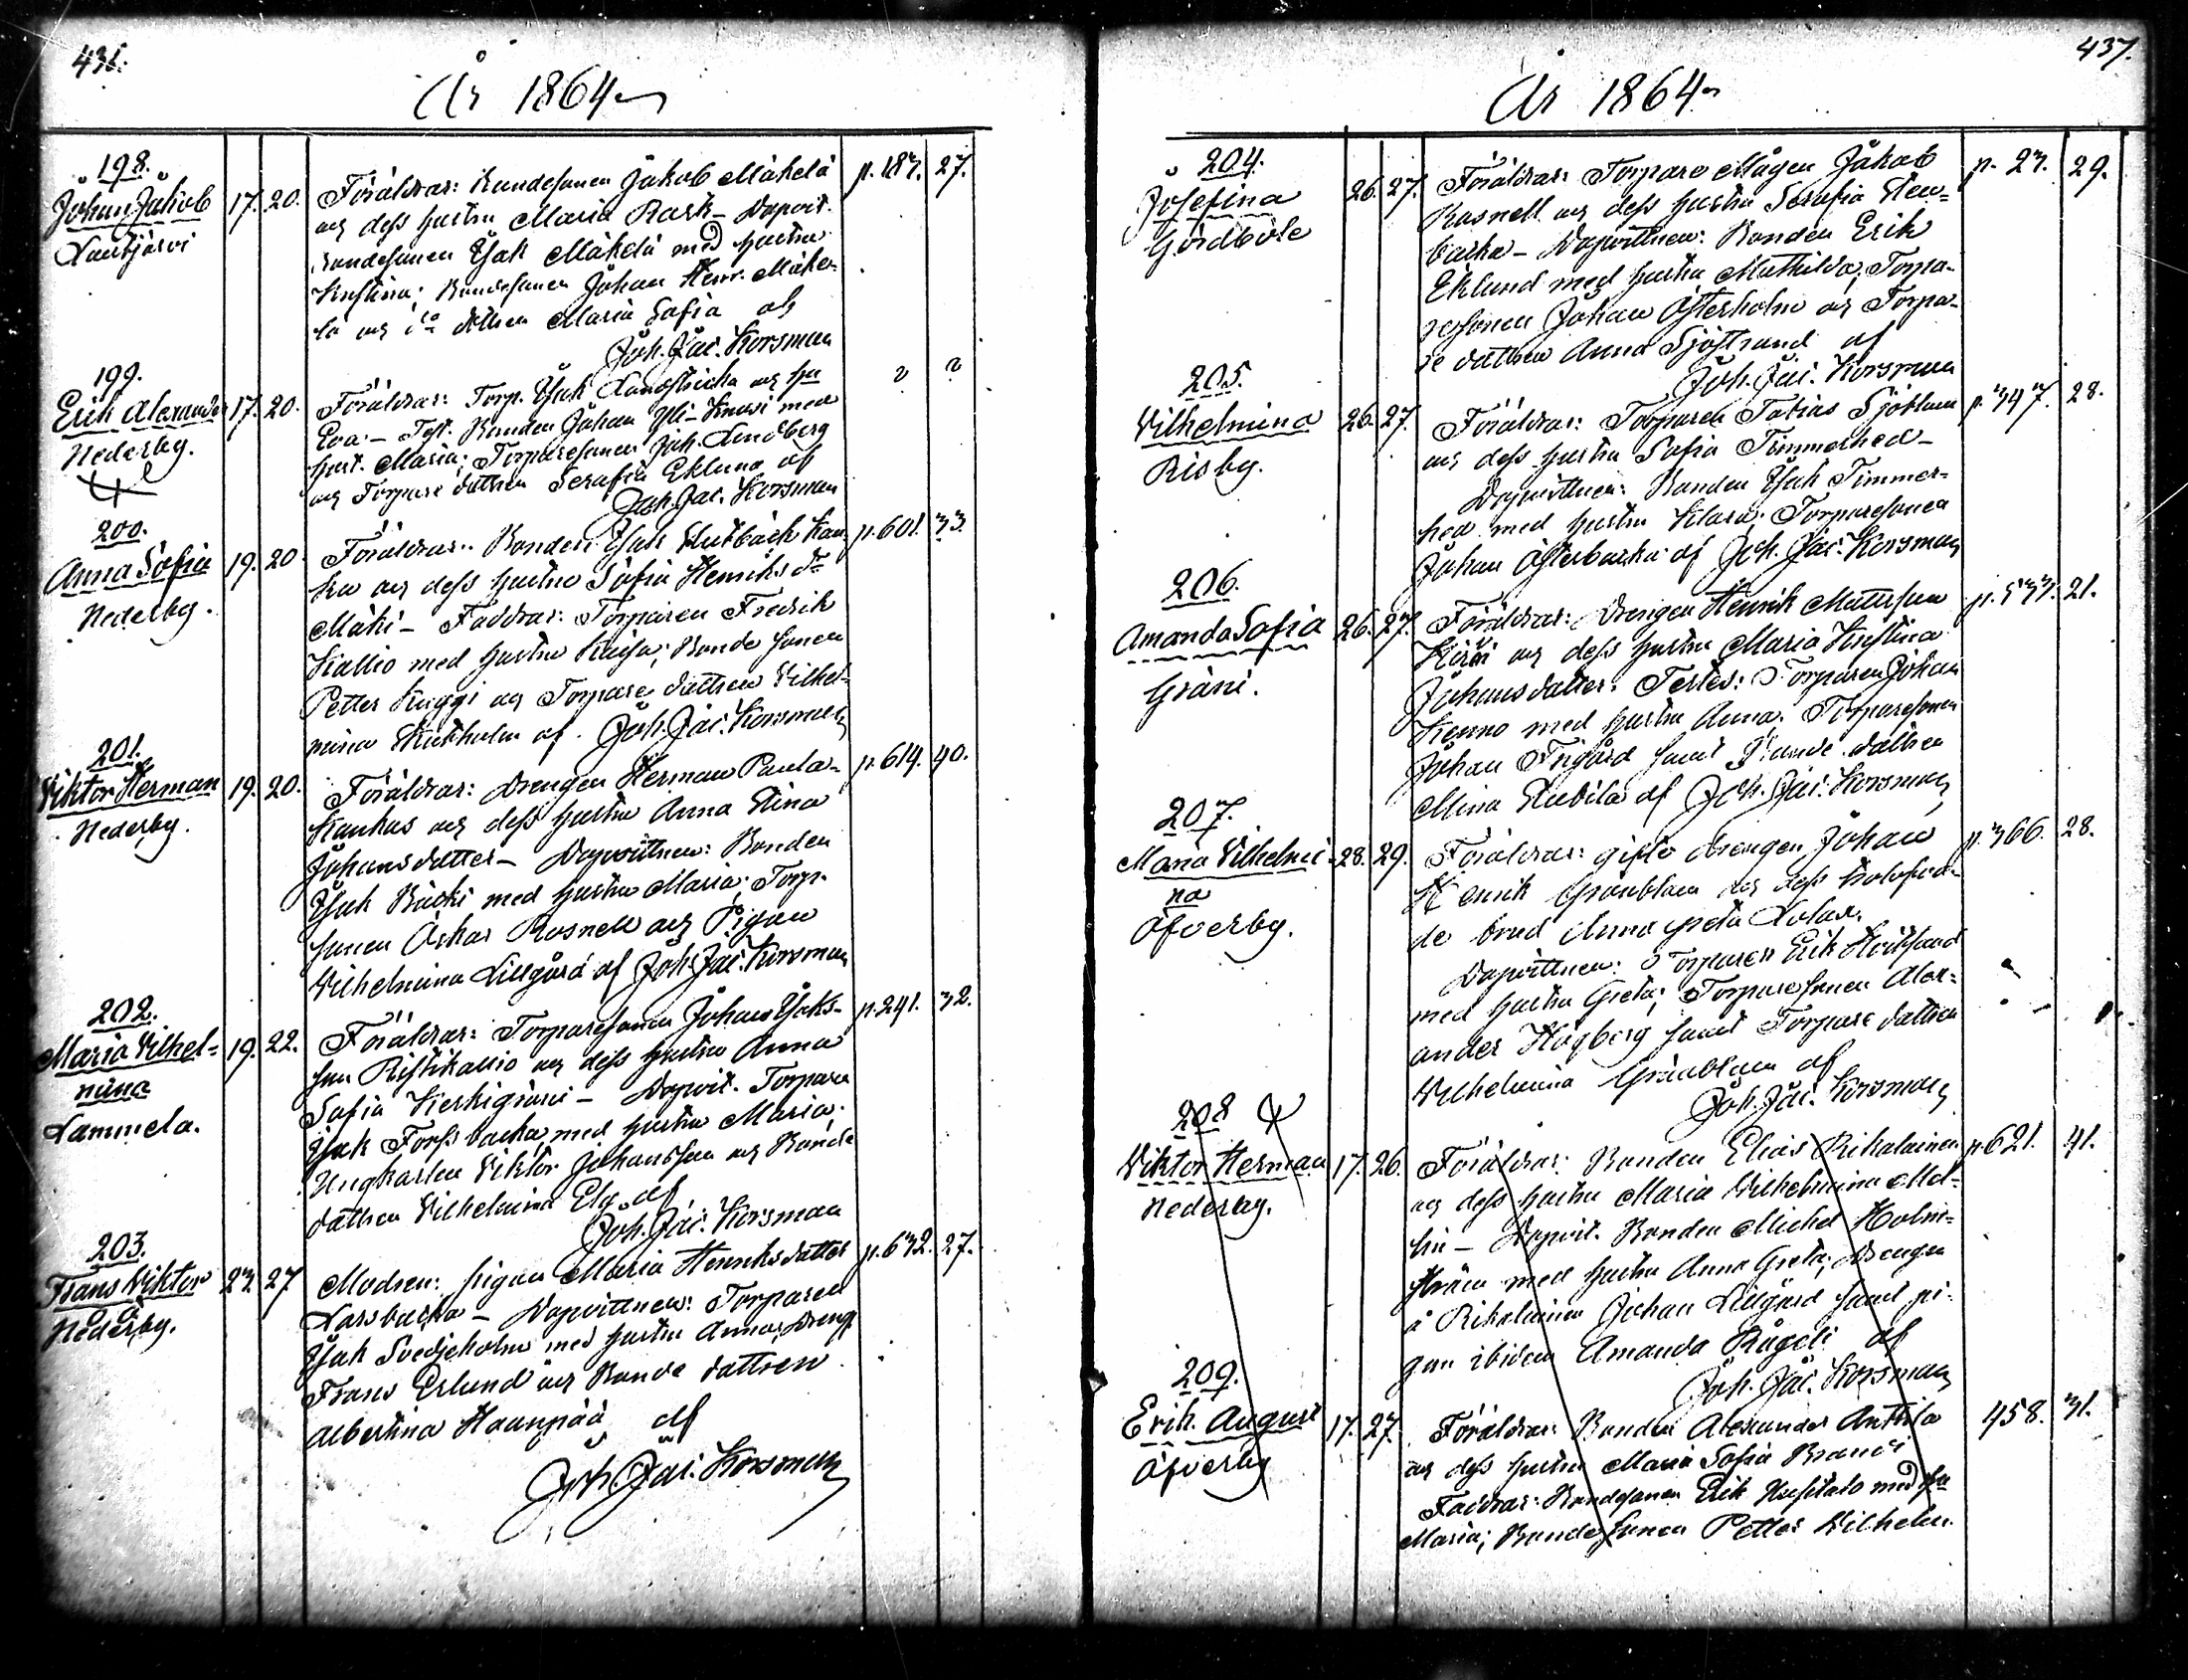 436.
År 1864
198.
Johan Jakob
Lautjärvi
17. 20.
Föräldrar: Bondesonen Jakob Mäkelä
och dess hustru Maria Rask – Dopvit.
Bondesonen Isak Mäkelä med hustru
Kristina; Bondesonen Johan Henr. Mäke-
lä och d:o dottren Maria Sofia af
Joh. Jac. Korsman
p. 187. 27.
199.
Erik Alexander
Nederby.
17. 20.
Föräldrar: Torp. Isak Långstricka och hu
Eva. – Test. Bonden Johan Yli-Knusi med
hust. Maria; Torparesonen Joh. Lindberg
och Torpare dottren Serafia Eklund af
Joh. Jac. Korsman
? ?
200.
Anna Sofia
Nederby.
19. 20
Föräldrar: Bonden Isak Slutbäck Kau-
ka och dess hustru Sofia Henriks dr
Mäki – Faddrar: Torparen Fredrik
Kallio med hustru Kaisa; Bonde sonen
Petter Kuggi och Torpare dottren Vilhel-
mina Stickholm af. Joh. Jac. Korsman
p. 601. 33.
201.
Viktor Herman
Nederby.
19. 20.
Föräldrar: Drengen Herman Panta-
Kankas och dess hustru Anna Stina
Johansdotter – Dopvittnen: Bonden
Isak Bäcki med hustru Maria; Torp.
sonen Oskar Rosnell och Pigan
Vilhelmina Lillgård af Joh. Jac. Korsman
p. 614. 40.
202.
Maria Vilhel-
mina
Lammela.
19. 22.
Föräldrar: Torparesonen Johan Isaks-
son Ristikallio och dess hustru Anna
Sofia Keskigräni – Dopvit. Torpare
Isak Forssbacka med hustru Maria.
Ungkarlen Viktor Johansson och Bonde
dottren Vilhelmina Elg af
Joh. Jac. Korsman
p. 241. 32.
203.
Frans Viktor
Nederby.
23. 27
Modren: pigan Maria Henriksdotter
Larsbacka – Dopvittnen: Torparen
Isak Svedjeholm med hustru Anna; Dreng
Frans Erlund och Bonde dottren
Albertina Haanpää af
Joh. Jac. Korsman
p. 632. 27.
437.
År 1864
204.
Josefina
Gördböle
26. 27.
Föräldrar: Torpare Mågen Jakob
Rosnell och dess hustru Serafia Sten-
backa – Dopvittnen: Bonden Erik
Eklund med hustru Mathilda; Torpa-
resonen Johan Österholm och Torpa-
re dottren Anna Sjöstrand af
Joh. Jac. Korsman
p. 23. 29.
205.
Vilhelmina
Risby.
26. 27.
Föräldrar: Torparen Tobias Sjöblom
och dess hustru Sofia Timmerhed –
Dopvittnen: Bonden Isak Timmer-
hed med hustru Klara; Torparesonen
Johan Österbacka af Joh. Jac. Korsman
p. 347. 28.
206.
Amanda Sofia
Gräni.
26. 27.
Föräldrar: Drengen Henrik Mattsson
och dess hustru Maria Kristina
Johansdotter: Testes: Torparen Johan
Kenno med hustru Anna. Torparesonen
Johan Frigård samt Bonde dottren
Mina Stubila af Joh. Jac. Korsman
p. 533. 21.
207.
Maria Vilhelmi-
na
Öfverby.
28. 29.
Föräldrar: gifte Drengen Johan
Henrik Granblom och dess trolofva-
de brud Anna Greta Lolax.
Dopvittnen: Torparen Erik Hvitsand
med hustru Greta; Torpare sonen Alex-
ander Högberg samt Torpare dottren
Vilhelmina Granblom af
Joh. Jac. Korsman
p. 366. 28.
208
Viktor Herman
Nederby.
17. 26.
Föräldrar: Bonden Elias Rikalainen
och dess hustru Maria Vilhelmina Mel-
lin – Dopvit. Bonden Michel Holm-
ström med hustru Anna Greta; Drengen
å Rikalainen Johan Lillgård samt pi-
gan ibidem Amanda Rågeli af
Joh. Jac. Korsman
p. 621. 41.
209.
Erik August
Öfverby
17. 27.
Föräldrar: Bonden Alexander Anttila
och dess hustru Maria Sofia Brandt
Faddrar: Bondesonen Erik Kusitalo med hu
Maria; Bonde sonen Petter Vilhelm
458. 31.